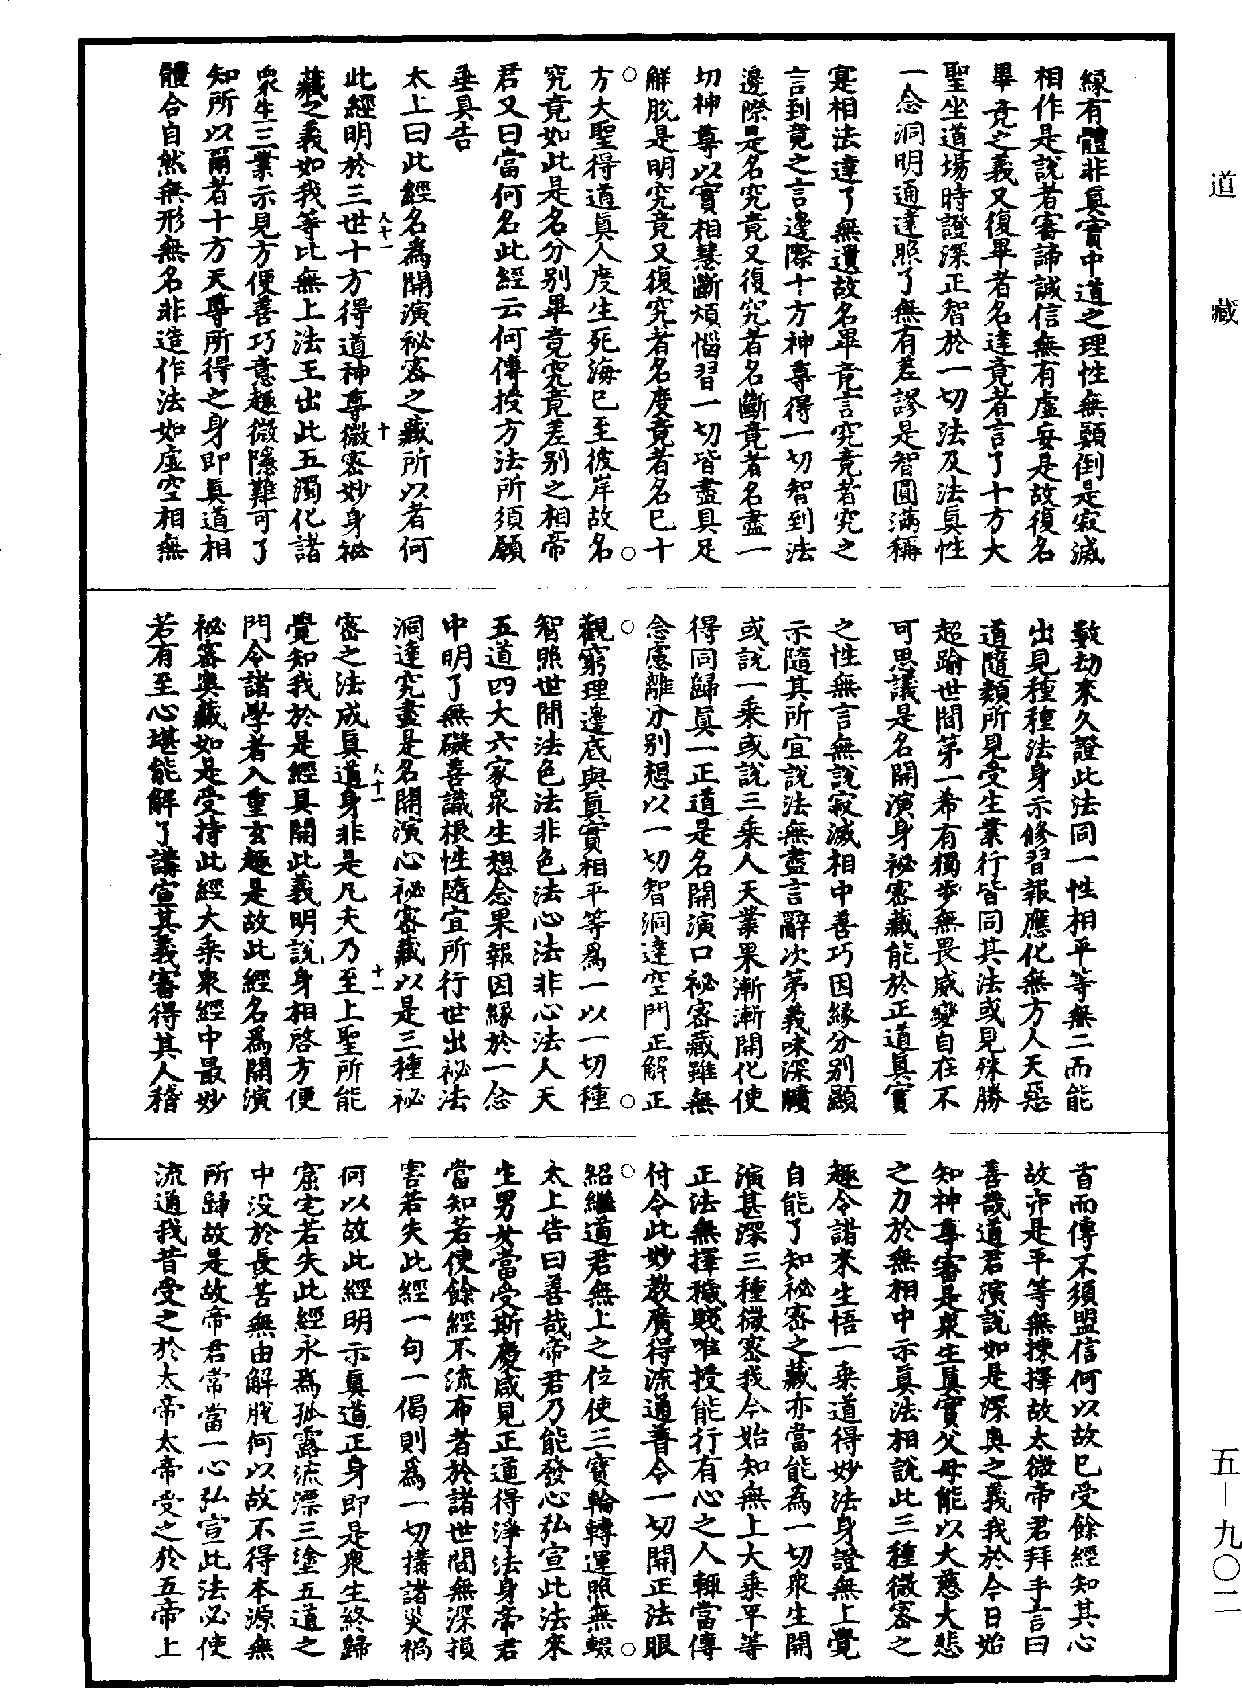 道藏
緣有體非真實中道之理性無顛倒是寂滅
相作是說者審諦誠信無有虛妄是故復名
畢竟之義又復畢者名達竟者言了十方大
聖坐道場時證深正智於一切法及法真性
一念洞明通達照了無有差謬是智圓滿稱
寔相法達了無遺故名畢竟言究竟者究之
言到竟之言邊際十方神尊得一切智到法
邊際是名究竟又復究者名斷竟者名盡一
切神尊以實相慧斷煩惱習一切皆盡具足
解脫是明究竟又復究者名度竟者名已十
方大聖得道真人度生死海已至彼岸故名
究竟如此是名分別畢竟究竟差別之相帝
君又曰當何名此經云何傳授方法所須願
垂具告
太上曰此經名為開演祕密之藏所以者何
此經明於三世十方得道神尊微密妙身祕
藏之義如我等比無上法王出此五濁化諸
眾生三業示見方便善巧意趣微隱難可了
知所以爾者十方天尊所得之身即真道相
體合自然無形無名非造作法如虛空相無
數劫來久證此法同一性相平等無二而能
出見種種法身示修習報應化無方人天惡
道隨類所見受生業行皆同其法或見殊勝
超踰世間第一希有獨步無畏威變自在不
可思議是名開演身祕密藏能於正道真實
之性無言無說寂滅相中善巧因緣分別顯
示隨其所宜說法無盡言辭次第義味深曠
或說一乘或說三乘人天業果漸漸開化使
得同歸真一正道是名開演口祕密藏雖無
念慮離分別想以一切智洞達空門正解正
觀窮理邊底與真實相平等為一以一切種
智照世間法色法非色法心法非心法人天
五道四大六家眾生想念果報因緣於一念
中明了無礙善識根性隨宜所行世出祕法
洞達究盡是名開演心祕密藏以是三種祕
密之法成真道身非是凡夫乃至上聖所能
覺知我於是經具開此義明說身相啓方便
門令諸學者入重玄趣是故此經名為開演
祕密奧藏如是受持此經大乘眾經中最妙
若有至心堪能解了講宣其義審得其人稽
首而傳不須盟信何以故已受餘經知其心
故亦是平等無揀擇故太微帝君拜手言曰
善哉道君演說如是深奧之義我於今日始
知神尊審是眾生真實父母能以大慈大悲
之力於無相中示真法相說此三種微密之
趣令諸來生悟一乘道得妙法身證無上覺
自能了知祕密之藏亦當能為一切眾生開
演甚深三種微密我今始知無上大乘平等
正法無擇穢賤唯授能行有心之人輒當傳
付令此妙教廣得流通普令一切開正法眼
紹繼道君無上之位使三寶輪轉運照無輟
太上告曰善哉帝君乃能發心弘宣此法來
生男女當受斯慶咸見正道得淨法身帝君
當知若使餘經不流布者於諸世間無深損
害若失此經一句一偈則為一切搆諸災禍
何以故此經明示真道正身即是眾生終歸
窟宅若失此經永為孤露流漂三塗五道之
中沒於長苦無由解脫何以故不得本源無
所歸故是故帝君常當一心弘宣此法必使
流通我昔受之於太帝太帝受之於五帝上
八十一
十
八十一
十一
五—九〇二